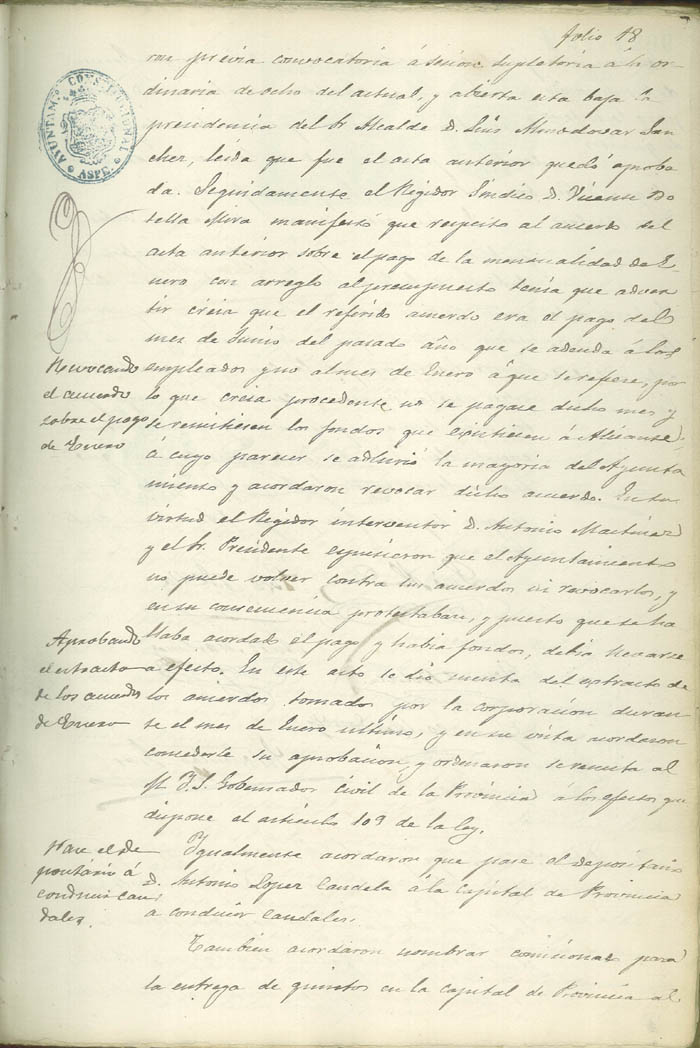 folio 48
ron previa convocatoria á sesion supletoria á la or-
dinaria de ocho del actual, y abierta esta bajo la
presidencia del Sr Alcalde D. Luis Almodovar San
chez, leida que fue el acta anterior quedó aproba
da. Seguidamente el Regidor Sindico D. Vicente Bo
tella Mira manifestó que respeito al acuerdo del
acta anterior sobre el pago de la mensualidad de E-
nero con arreglo al presupuesto tenia que adver
tir creia que el referido acuerdo era el pago del
mes de Junio del pasado año que se adeuda á los
empleados y no al mes de Enero á que se refiere, por
lo que creia procedente no se pagase dicho mes y
se remitiesen los fondos que existiesen á Alicante,
á cuyo parecer se adhirió la mayoria del Ayunta
miento y acordaron revocar dicho acuerdo. En su
virtud el Regidor interventor D. Antonio Martinez
y el Sr. Presidente espusieron que el Ayuntamiento
no puede volver contra sus acuerdos ni revocarlos, y
en su consecuencia protestaban, y puesto que se ha
llaba acordado el pago y habia fondos, debia llevarse
a efecto. En este acto se dio cuenta del estracto de
los acuerdos tomados por la corporacion duran
te el mes de Enero ultimo, y en su vista acordaron
concederle su aprobacion, y ordenaron se remita al
M. I. S. Gobernador Civil de la Provincia á los efectos que
dispone el artículo 109 de la ley.
Igualmente acordaron que pase el depositario
D. Antonio Lopez Candela á la Capital de Provincia
a conducir caudales.
Tambien acordaron nombrar comisionado para
la entrega de quintos en la Capital de Provincia al
Revocando
el acuerdo
sobre el pago
de Enero
Aprobando
el estracto
de los acuerdos
de Enero
Pase el de
positario á
conducir cau
dales.
AYUNTAM.º CONSTITUCIONAL
ASPE.